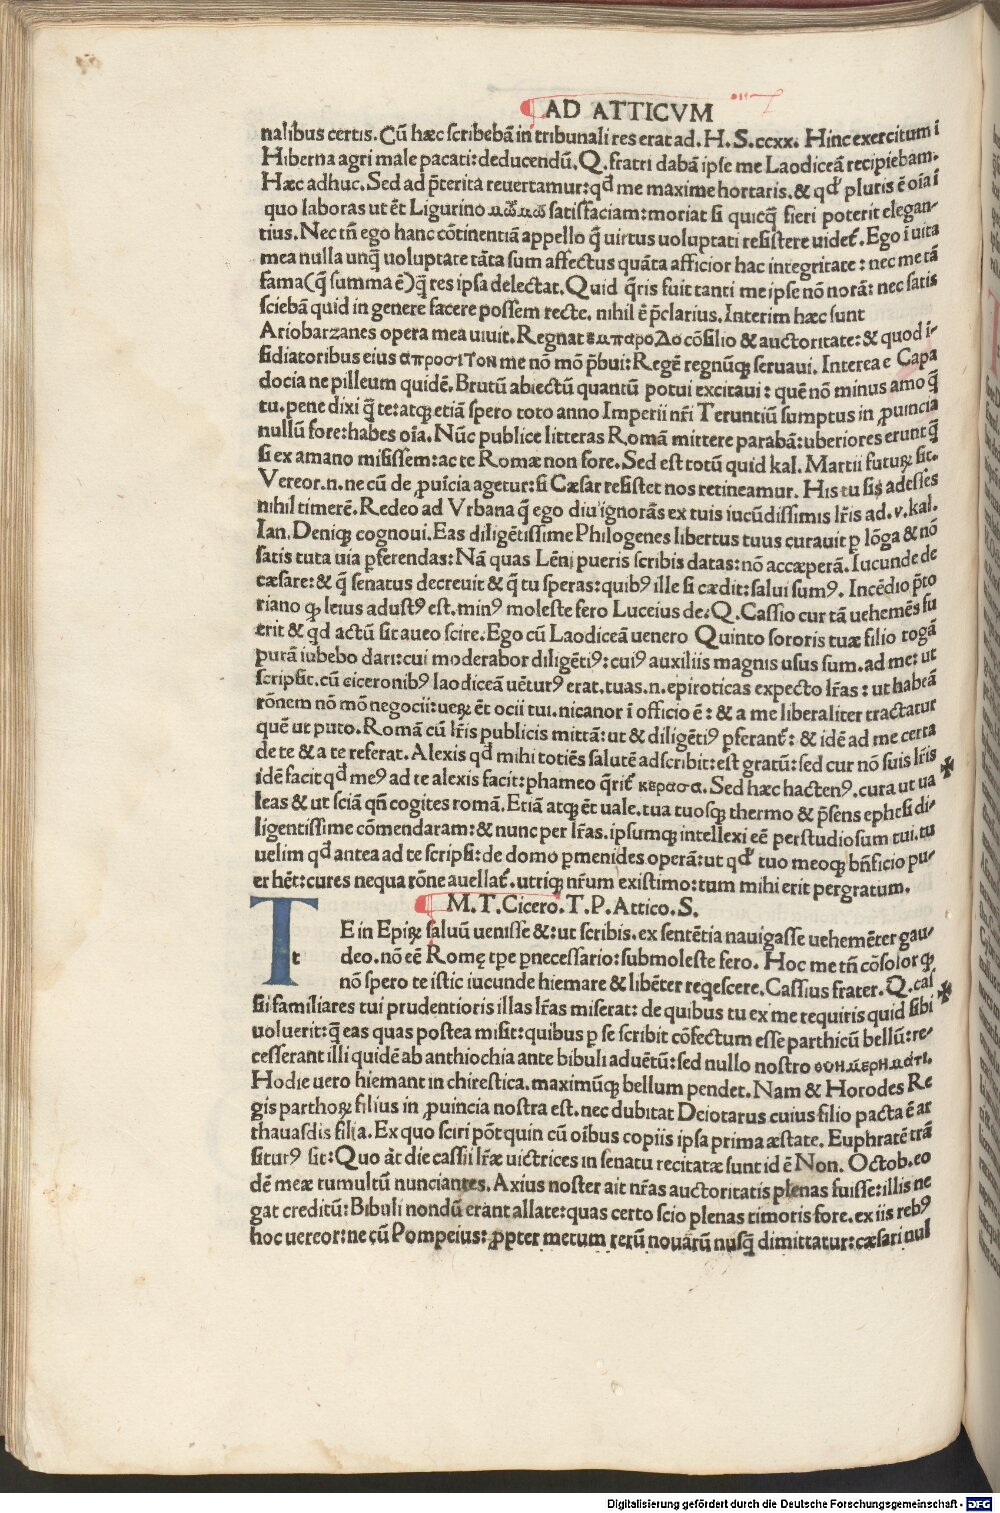 AD ATTICVM
nalibus certis. Cū hæc scribebā in tribunali res erat ad. H. S. ccxx. Hinc exercitum ī
Hiberna agri male pacati: deducendū. Q. fratri dabā ipse me Laodiceā recipiebam.
Hæc adhuc. Sed ad p̄terita reuertamur: qđ me maxime hortaris. & qđ pluris ē oīa ī
quo laboras ut ēt Ligurino satisfaciam: moriar si quicq̄ fieri poterit elegan-
tius. Nec tn̄ ego hanc cōtinentiā appello q̄ uirtus uoluptati resistere uideř. Ego ī uita
mea nulla unq̄ uoluptate tāta sum affectus quāta afficior hac integritate: nec me tā
fama (q̄ summa ē) q̄ res ipsa delectat. Quid q̄ris fuit tanti me ipse nō norā: nec satis
sciebā quid in genere facere possem recte, nihil ē p̄clarius. Interim hæc sunt
Ariobarzanes opera mea uiuit. Regnat εωπαροΔο cōsilio & auctoritate: & quod i-
sidiatoribus eius απροσιτον me nō mō p̄bui: Regē regnūq; seruaui. Interea e Capa
docia ne pilleum quidē. Brutū abiectū quantū potui excitaui: quē nō minus amo q̄
tu. pene dixi q̄ te: atq; etiā spero toto anno Imperii nr̄i Teruntiū sumptus in ꝓuincia
nullū fore: habes oīa. Nūc publice litteras Romā mittere parabā: uberiores erunt q̄
si ex amano misissem: ac te Romæ non fore. Sed est totū quid kal. Martii futuꝝ sit.
Vereor. n. ne cū de ꝓuīcia agetur: si Cæsar resistet nos retineamur. His tu sis adesses
nihil timerē. Redeo ad Vrbana q̄ ego diu ignorās ex tuis iucūdissimis lr̄is ad. v. kal.
Ian. Deniq; cognoui. Eas diligētissime Philogenes libertus tuus curauit ꝑ lōga & nō
satis tuta uia ꝑferendas: Nā quas Lēni pueris scribis datas: nō accæperā. Iucunde de
cæsare: & q̄ senatus decreuit & q̄ tu speras: quibꝰ ille si cædit: salui sumꝰ. Incēdio p̄to
riano q; leius adustꝰ est. minꝰ moleste fero Luceius de. Q. Cassio cur tā uehemēs fu
erit & qđ actū sit aueo scire. Ego cū Laodiceā uenero Quinto sororis tuæ filio togā
purā iubebo dari: cui moderabor diligētiꝰ: cuiꝰ auxiliis magnis usus sum. ad me: ut
scripsit. cū ciceronibꝰ laodiceā uēturꝰ erat. tuas. n. epiroticas expecto lr̄as: ut habeā
rōnem nō mō negocii: ueꝝ ēt ocii tui. nicanor ī officio ē: & a me liberaliter tractatur
quē ut puto. Romā cū lr̄is publicis mittā: ut & diligētiꝰ ꝑferanř: & idē ad me certa
de te & a te referat. Alexis qđ mihi totiēs salutē adscribit: est gratū: sed cur nō suis lr̄is
idē facit qđ meꝰ ad te alexis facit: phameo q̄riř κερασα. Sed hæc hactenꝰ. cura ut ua
leas & ut sciā qn̄ cogites romā. Etiā atq; ēt uale. tua tuosq; thermo & p̄sens ephesi di-
ligentissime cōmendaram: & nunc per lr̄as. ipsumq; intellexi eē perstudiosum tui. tu
uelim qđ antea ad te scripsi: de domo ꝑmenides operā: ut qđ tuo meoq; bn̄ficio pu-
er hēt: cures nequa rōne auellař. utriq; nr̄um existimo: tum mihi erit pergratum.
M. T. Cicero. T. P. Attico. S.
T E in Epiꝝ saluū uenisse &: ut scribis. ex sentētia nauigasse uehemēter gau-
t deo. nō eē Romę tꝑe ꝑnecessario: submoleste fero. Hoc me tn̄ cōsolor q;
nō spero te istic iucunde hiemare & libēter reqescere. Cassius frater. Q. cas
sii familiares tui prudentioris illas lr̄as miserat: de quibus tu ex me requiris quid sibi
uoluerit: q̄ eas quas postea misit: quibus ꝑ se scribit cōfectum esse parthicū bellū: re-
cesserant illi quidē ab anthiochia ante bibuli aduētū: sed nullo nostro
Hodie uero hiemant in chirestica. maximūq; bellum pendet. Nam & Horodes Re
gis parthoꝝ filius in ꝓuincia nostra est. nec dubitat Deiotarus cuius filio pacta ē ar
thauasdis filia. Ex quo sciri pōt quin cū oībus copiis ipsa prima æstate. Euphratē trā
siturꝰ sit: Quo āt die cassii lr̄æ uictrices in senatu recitatæ sunt id ē Non. Octob. eo
dē meæ tumultū nunciantes. Axius noster ait nr̄as auctoritatis plenas fuisse: illis ne
gat creditū: Bibuli nondū erant allate: quas certo scio plenas timoris fore. ex iis rebꝰ
hoc uereor: ne cū Pompeius: ꝓpter metum rerū nouārū nusq̄ dimittatur: cæsari nul
Digitalisierung gefördert durch die Deutsche Forschungsgemeinschaft - DFG